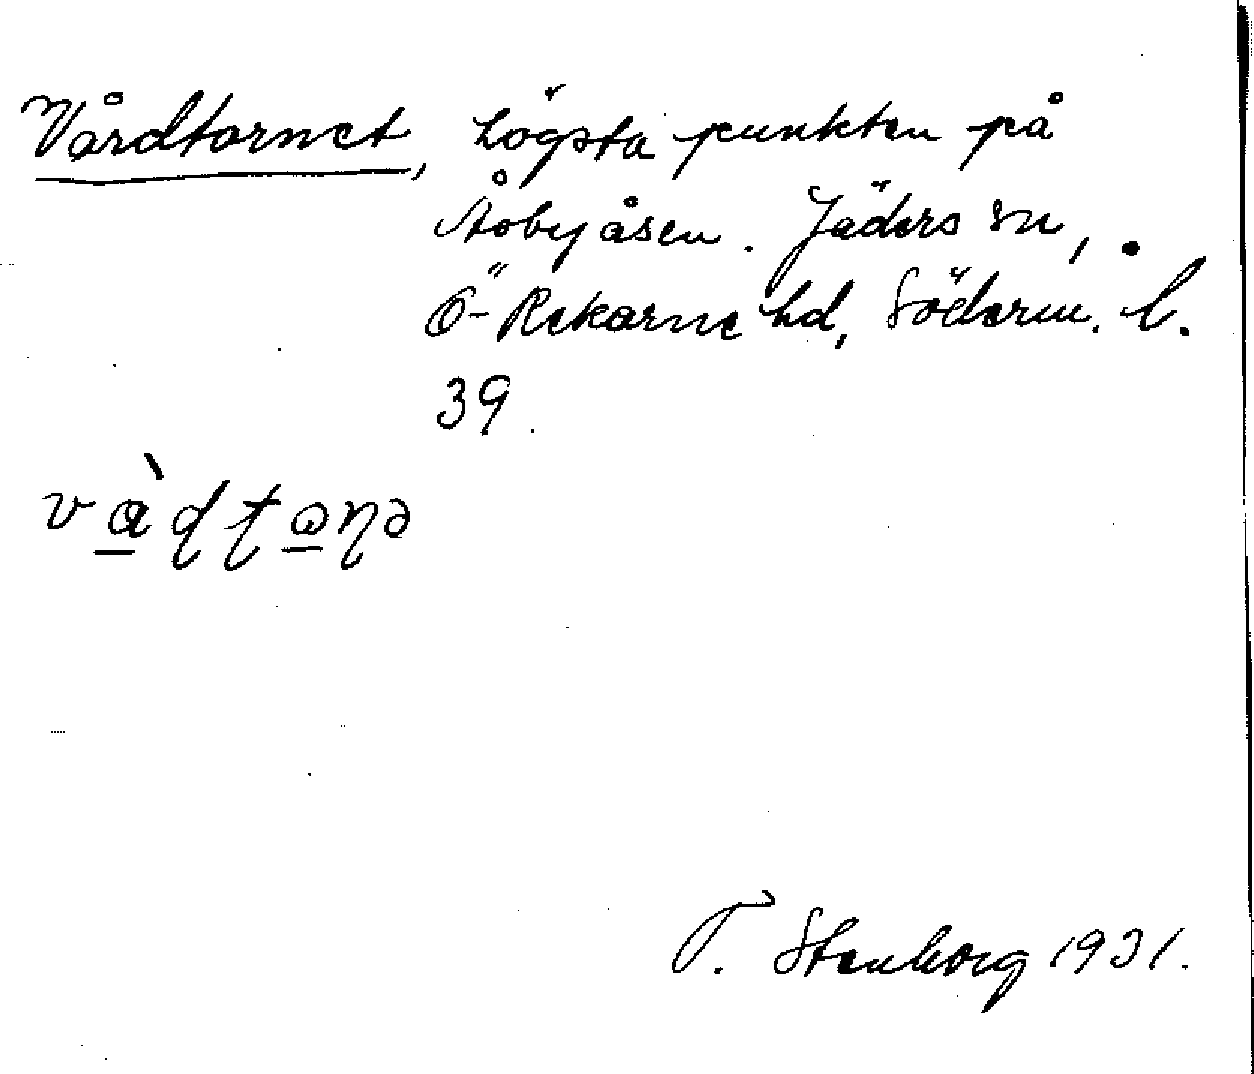 Vårdtornet, högsta punkten på
Åbyåsen. Jäders sn,
Ö-Rekarne hd, Söderm. l.
39.
T. Stenborg 1931.